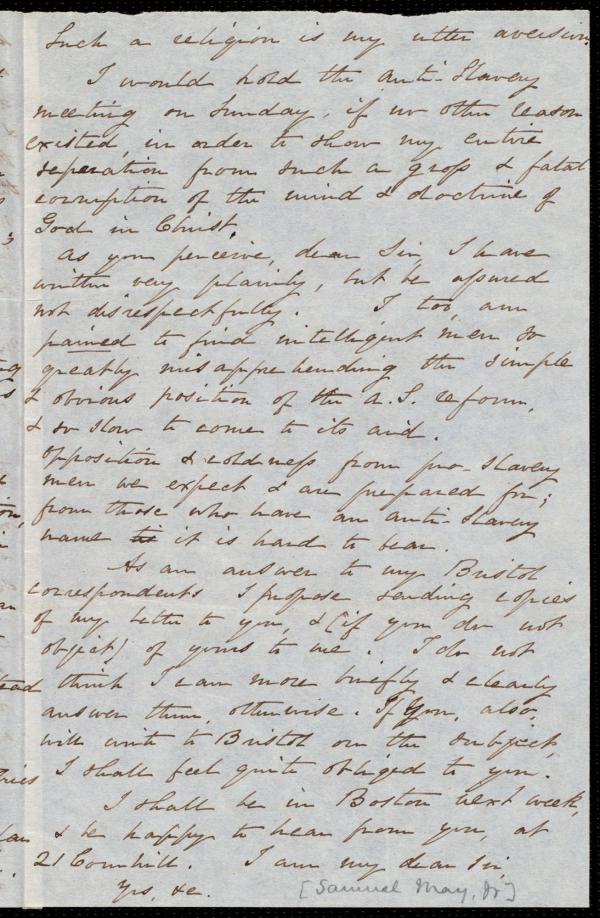 Such a religion is my utter aversion.
I would hold the Anti-Slavery
meeting on Sunday, if no other reason
existed, in order to show my entire
seperation from such a gross & fatal
corruption of the mind & doctrine of
God in Christ.
As you perceive, dear Sir, I have
written very plainly, but be assured
not disrespectfully. I too, am
pained to find intelligent men so
greatly misapprehending the simple
& obvious position of the A. S. reform,
& so slow to come to its aid.
Opposition & coldness from pro-slavery
men we expect & are prepared for;
from those who have an anti-slavery
name it is hard to bear.
As an answer to my Bristol
correspondents I propose sending copies
of my letter to you, & (if you do not
object) of yours to me. I do not
think I can more briefly & clearly
answer them, otherwise. If you, also,
will write to Bristol on the subject,
I shall feel quite obliged to you.
I shall be in Boston next week,
& be happy to hear from you, at
21 Cornhill. I am my dear Sir,
Yrs, &c. [Samuel May, Jr]